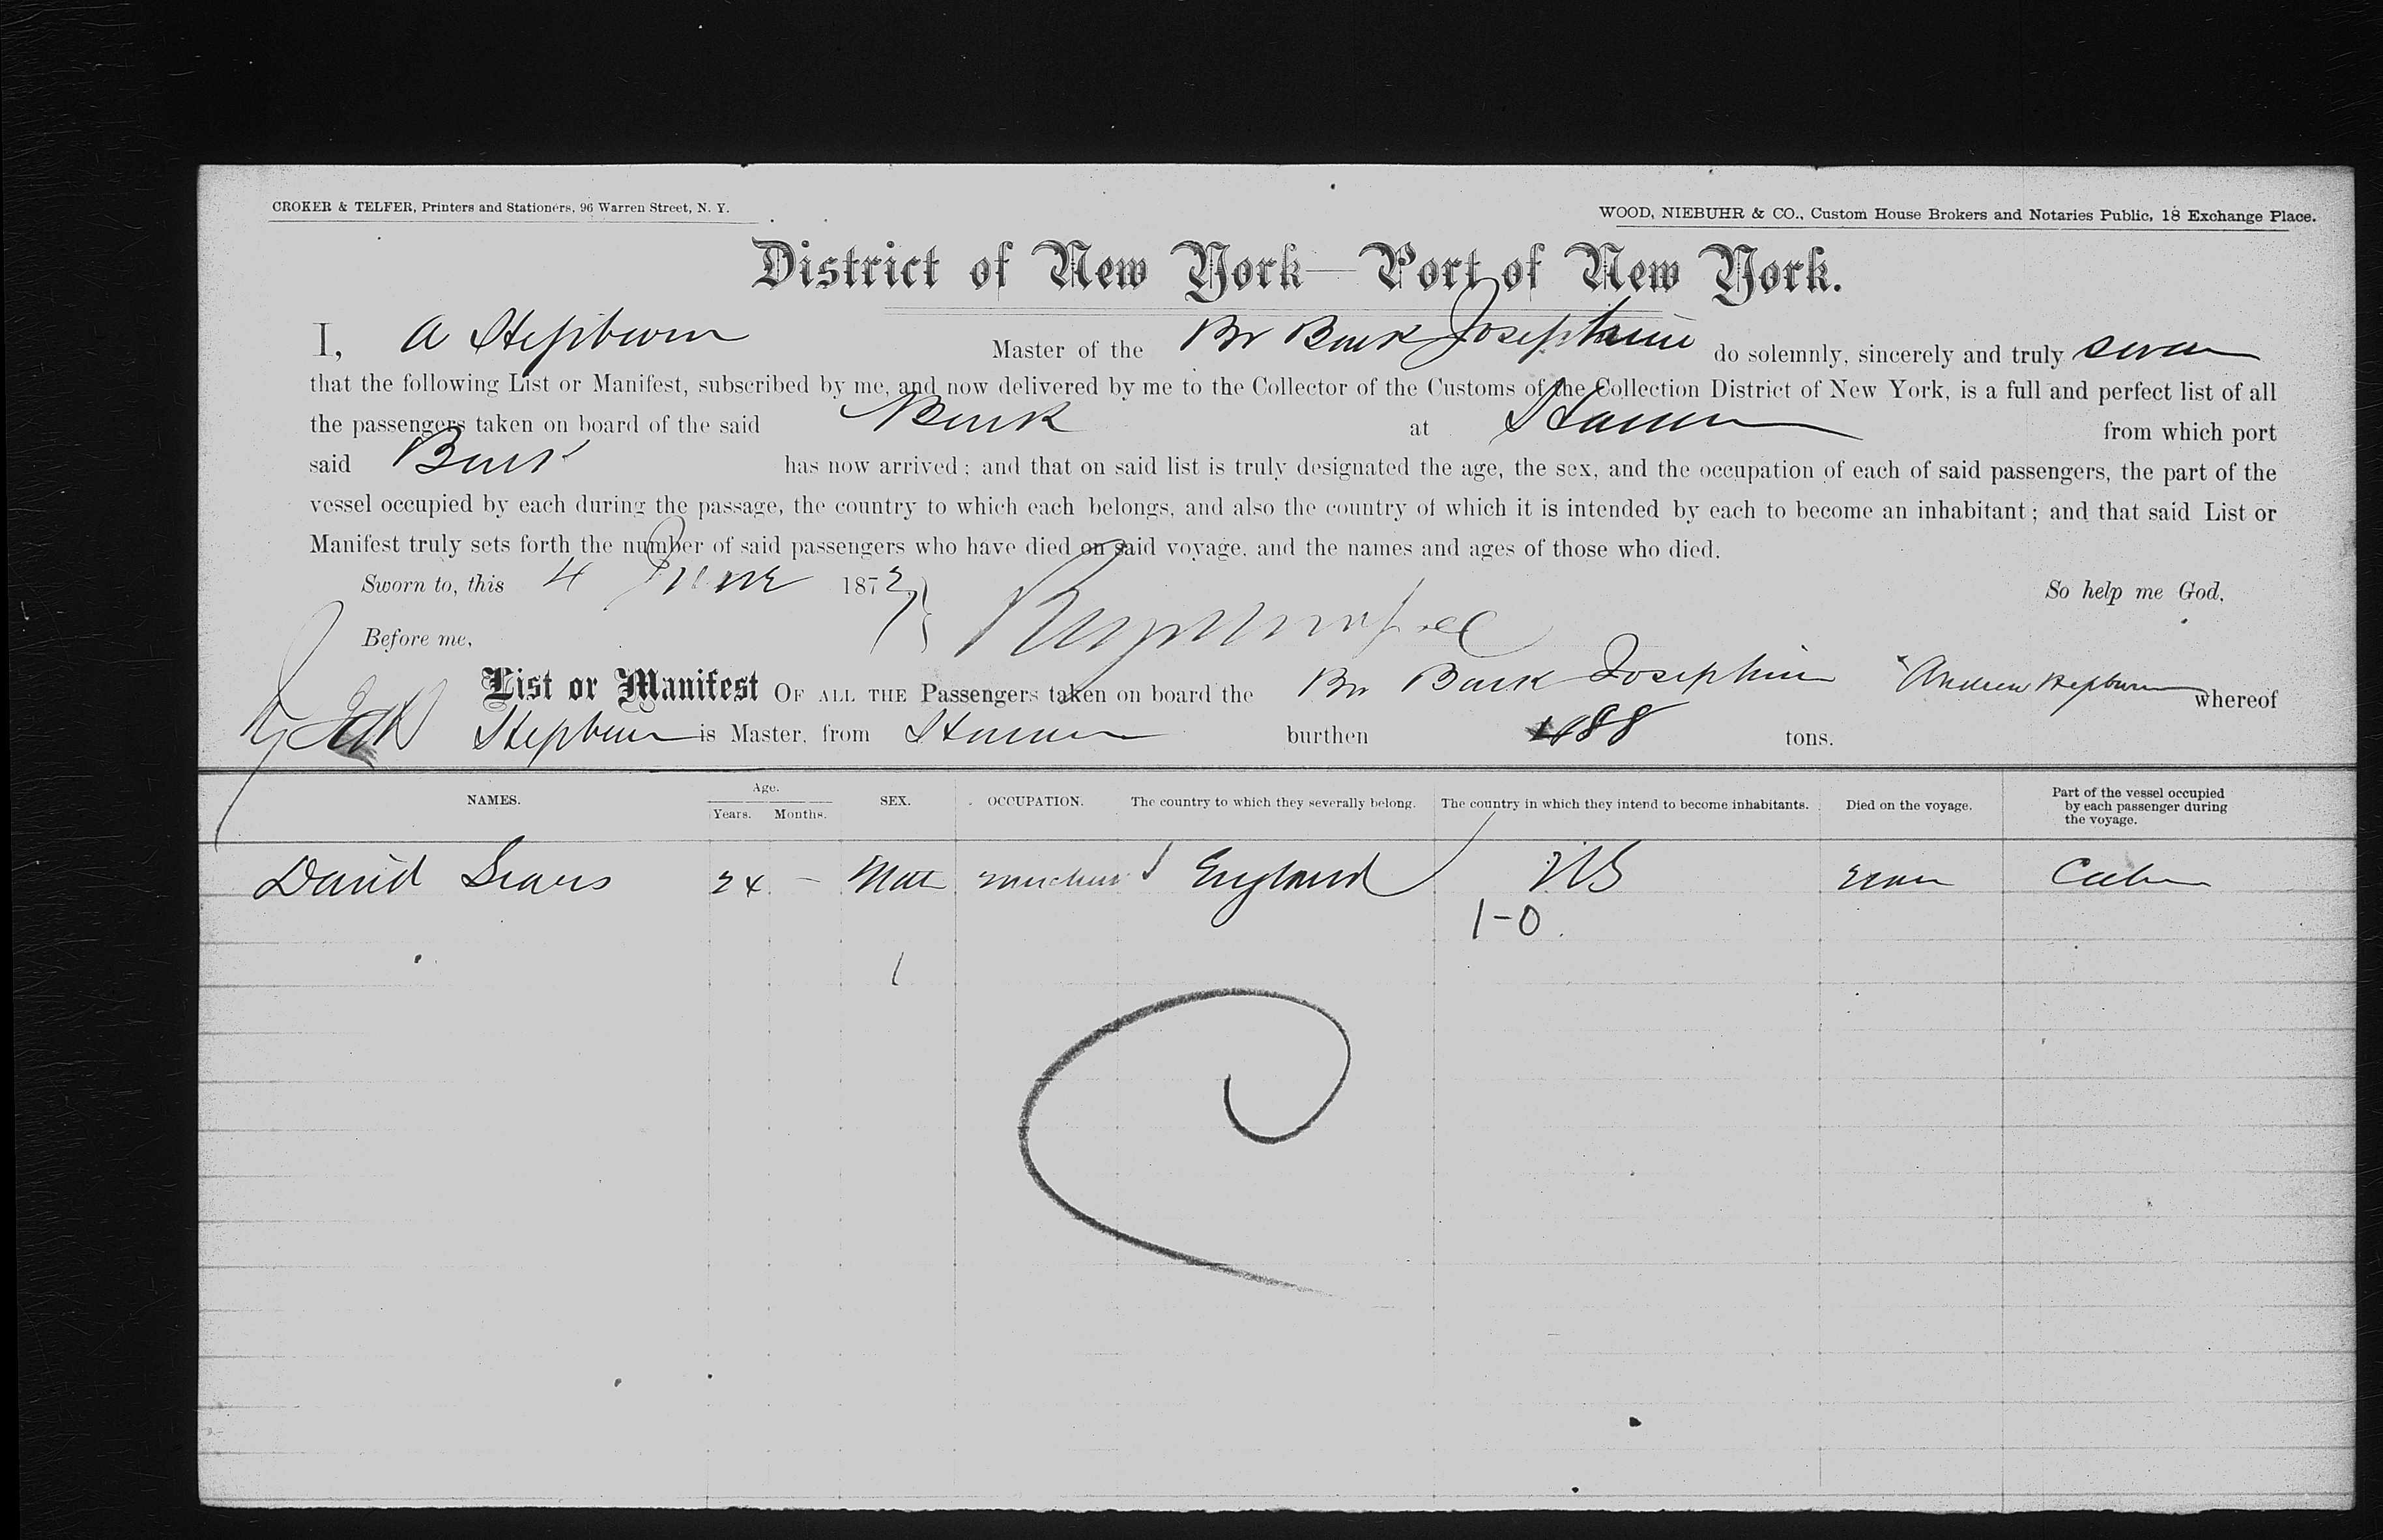 CROKER & TELFER, Printers and Stationers, 96 Warren Street, N. Y.
WOOD, NIEBUHR & CO., Custom House Brokers and Notaries Public, 18 Exchange Place.
District of New York—Port of New York.
I, A Hepburn Master of the Br Bark Josephine do solemnly, sincerely and truly swear
that the following List or Manifest, subscribed by me, and now delivered by me to the Collector of the Customs of the Collection District of New York, is a full and perfect list of all
the passengers taken on board of the said Bark at Havana from which port
said Bark has now arrived; and that on said list is truly designated the age, the sex, and the occupation of each of said passengers, the part of the
vessel occupied by each during the passage, the country to which each belongs, and also the country of which it is intended by each to become an inhabitant; and that said List or
Manifest truly sets forth the number of said passengers who have died on said voyage, and the names and ages of those who died.
Sworn to, this 4 June 1872 So help me God,
Before me,
List or Manifest OF ALL THE Passengers taken on board the Br Bark Josephine Andrew Hepburn whereof
Hepburn is Master, from Havana burthen 488 tons.
NAMES. Age. Years. Months. SEX. OCCUPATION. The country to which they severally belong. The country in which they intend to become inhabitants. Died on the voyage. Part of the vessel occupied by each passenger during the voyage.
David 24 – Male England US Cabin
1-0
1